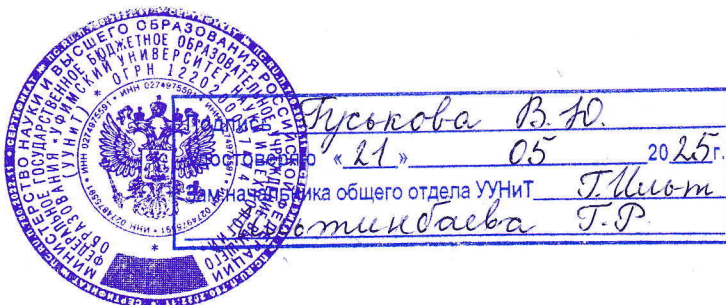 МИНИСТЕРСТВО НАУКИ И ВЫСШЕГО ОБРАЗОВАНИЯ РОССИЙСКОЙ ФЕДЕРАЦИИ
ФЕДЕРАЛЬНОЕ ГОСУДАРСТВЕННОЕ БЮДЖЕТНОЕ ОБРАЗОВАТЕЛЬНОЕ УЧРЕЖДЕНИЕ ВЫСШЕГО
ОБРАЗОВАНИЯ «УФИМСКИЙ УНИВЕРСИТЕТ НАУКИ И ТЕХНОЛОГИЙ»
(УУНиТ) * ОГРН
ИНН 0274975591 * ИНН 0274975591
Подпись Гуськова В.Ю.
Удостоверяю «21» 05 2025г.
Зам.начальника общего отдела УУНиТ
Т.Р.